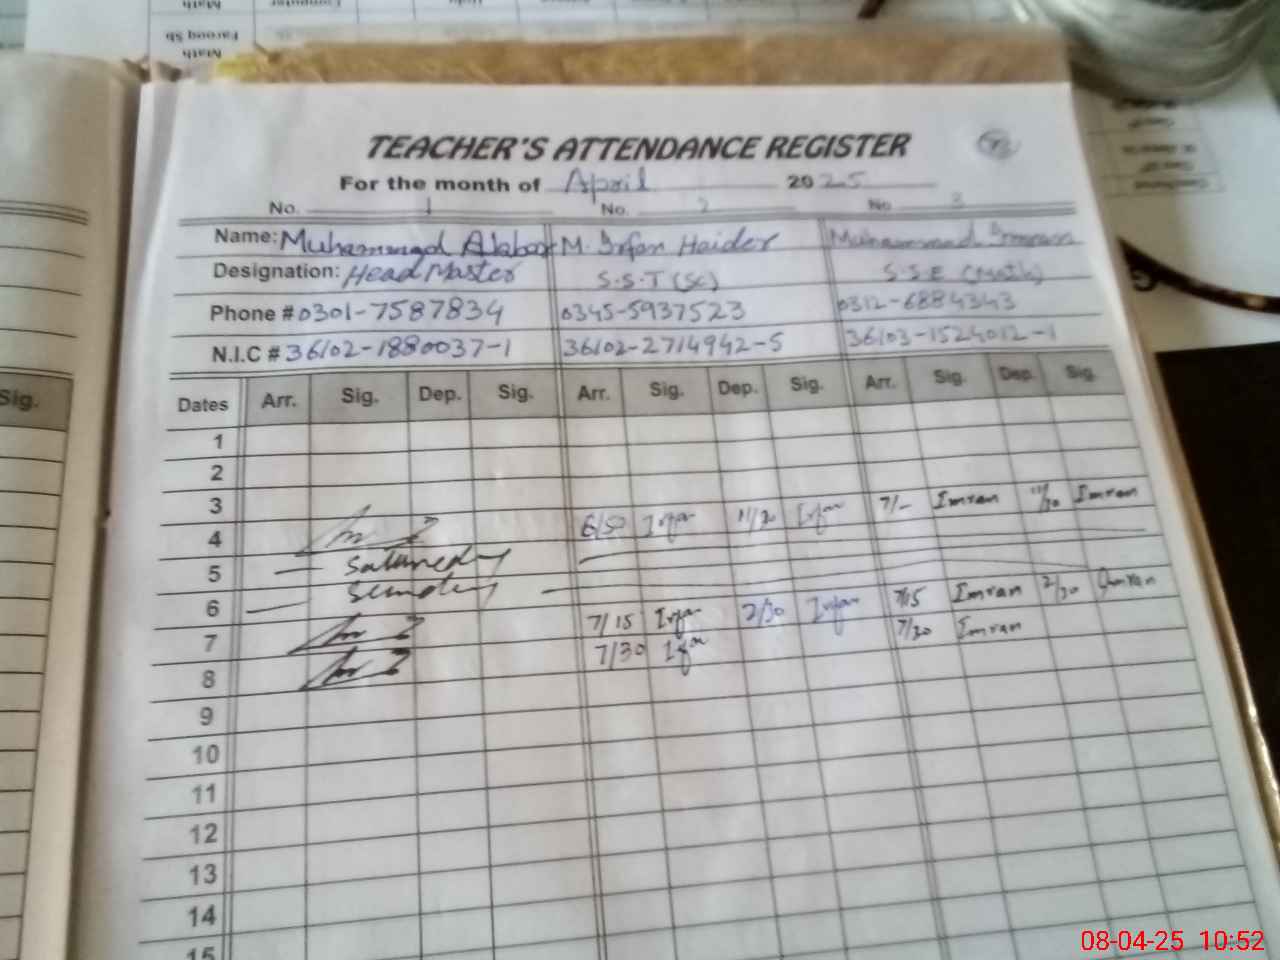 Math
Farooq Sb
Math
Computer
TEACHER'S ATTENDANCE REGISTER
For the month of April 2025
No. 1 No. 2 No 3
Name: Muhammad Akbar M. Irfan Haider Muhammad Imran
Designation: Head Master S.S.T (Sc) S.S.E (Math)
Phone # 0301-7587834 0345-5937523 0312-6884343
N.I.C # 36102-1880037-1 36102-2714942-5 36103-1524012-1
Sig.
Dates Arr. Sig. Dep. Sig. Arr. Sig. Dep. Sig. Arr. Sig. Dep. Sig.
1
2
3
4 6/50 Irfan 11/30 Irfan 7/- Imran 11/30 Imran
5 Saturday
6 Sunday
7 7/15 Irfan 2/30 Irfan 7/15 Imran 2/30 Imran
8 7/30 Irfan 7/30 Imran
9
10
11
12
13
14
15
08-04-25 10:52